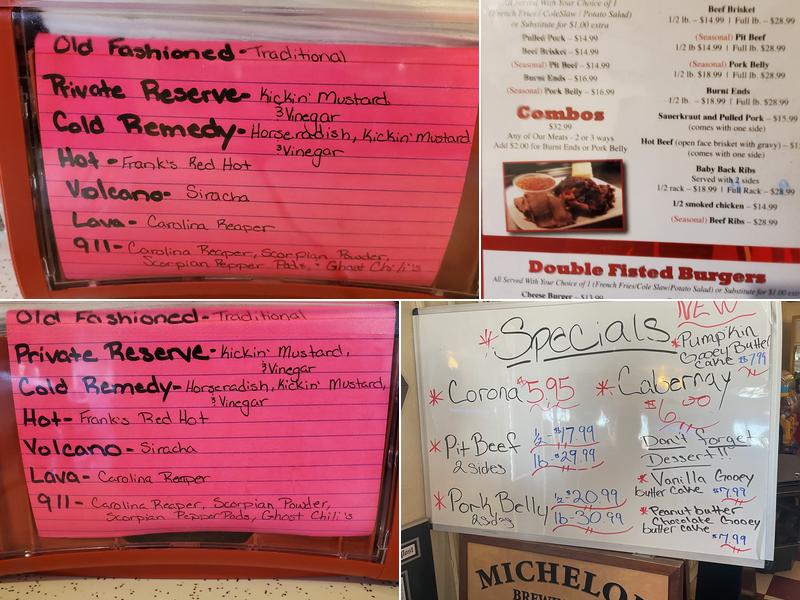 Old Fashioned - Traditional
Private Reserve - Kickin' Mustard,
& Vinegar
Cold Remedy - Horseradish, Kickin' Mustard
& Vinegar
Hot - Frank's Red Hot
Volcano - Siracha
Lava - Carolina Reaper
911 - Carolina Reaper, Scorpian Powder,
Scorpian Pepper Pods, & Ghost Chili's
All Served With Your Choice of 1
(French Fries / ColeSlaw / Potato Salad)
or Substitute for $1.00 extra
Pulled Pork – $14.99
Beef Brisket – $14.99
(Seasonal) Pit Beef – $14.99
Burnt Ends – $16.99
(Seasonal) Pork Belly – $16.99
Combos
$32.99
Any of Our Meats - 2 or 3 ways
Add $2.00 for Burnt Ends or Pork Belly
Beef Brisket
1/2 lb. – $14.99 | Full lb. – $28.99
(Seasonal) Pit Beef
1/2 lb $14.99 | Full lb. $28.99
(Seasonal) Pork Belly
1/2 lb. $18.99 | Full lb. $28.99
Burnt Ends
1/2 lb. – $18.99 | Full lb. $28.99
Sauerkraut and Pulled Pork – $15.99
(comes with one side)
Hot Beef (open face brisket with gravy) – $1
(comes with one side)
Baby Back Ribs
Served with 2 sides
1/2 rack – $18.99 | Full Rack – $28.99
1/2 smoked chicken – $14.99
(Seasonal) Beef Ribs – $28.99
Double Fisted Burgers
All Served With Your Choice of 1 (French Fries/Cole Slaw/Potato Salad) or Substitute for $1.00 extra
Cheese Burger – $13.99
Old Fashioned - Traditional
Private Reserve - Kickin' Mustard,
& Vinegar
Cold Remedy - Horseradish, Kickin' Mustard,
& Vinegar
Hot - Frank's Red Hot
Volcano - Siracha
Lava - Carolina Reaper
911 - Carolina Reaper, Scorpian Powder,
Scorpian Pepper Pods, Ghost Chili's
* Specials
NEW
* Pumpkin
Gooey Butter
cake $7.99
* Corona $5.95
* Cabernay
$6.00
* Pit Beef
2 sides
1/2 - $17.99
lb - $29.99
* Pork Belly
2 sides
1/2 $20.99
lb - 30.99
Don't forget
Dessert!!
* Vanilla Gooey
butter cake $7.99
* Peanut butter
Chocolate Gooey
butter cake
$7.99
MICHELO
BREWE